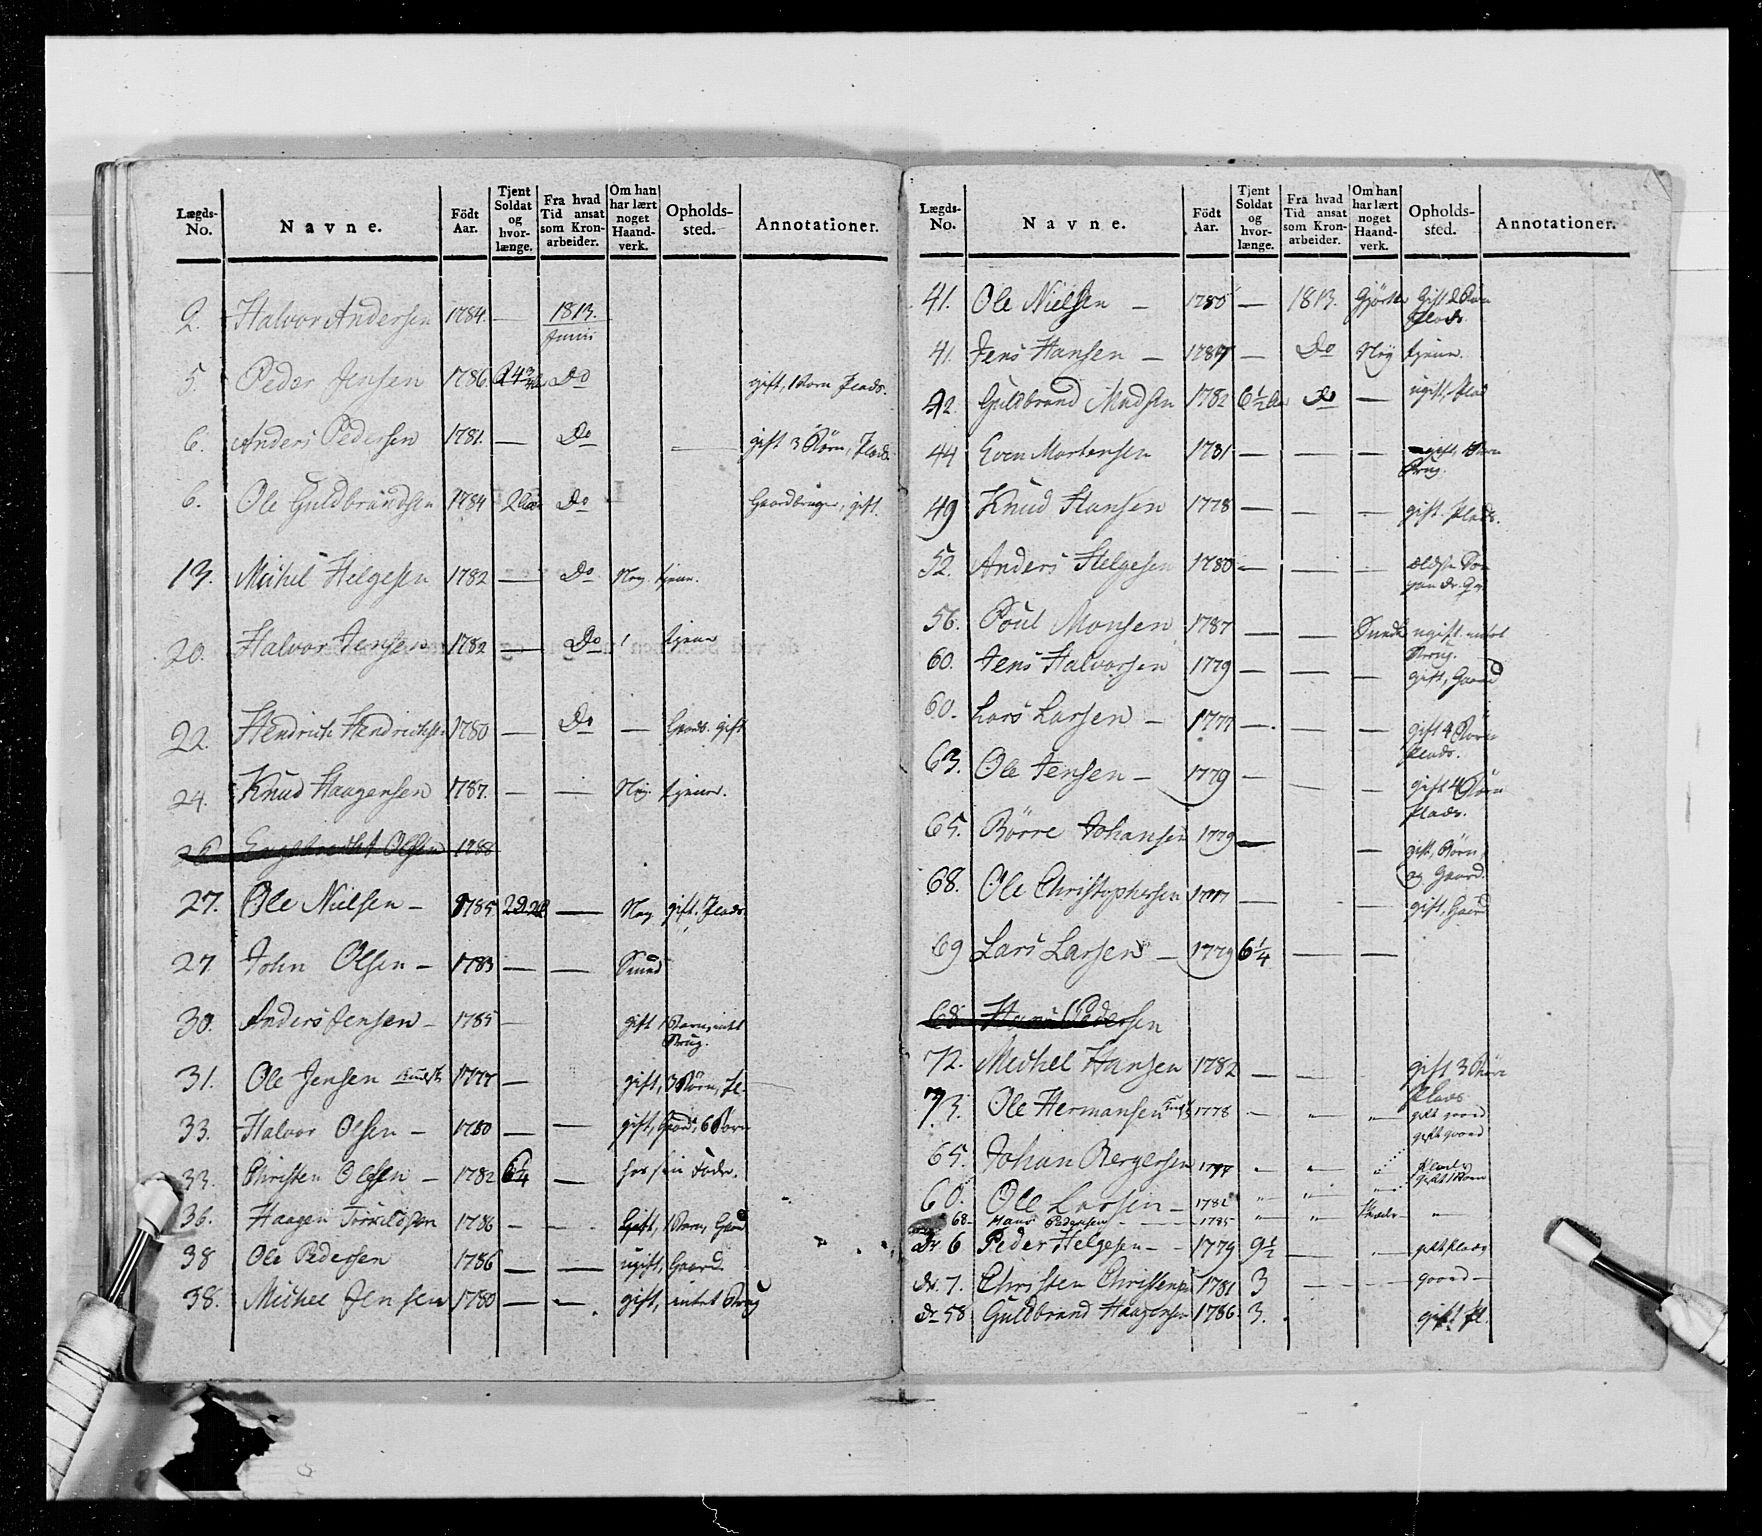 Lægds- No. Navne. Född Aar. Tjent Soldat og hvor- længe. Fra hvad Tid ansat som Kron- arbeider. Om han har lært noget Haand- verk. Opholds- sted. Annotationer.
2. Halvor Andersen 1784. — 1813. Junii
5. Peder Jensen 1786. Do gift, 1 Barn Plads.
6. Anders Pedersen 1781. — Do — gift 3 Börn, Plads.
6. Ole Guldbrandsen 1784 2 Do Gaardbruger, gift.
13. Michel Helgesen 1782 — Do Ney. tjener.
20. Halvor Jensen 1782 — Do tjener
22. Hendrich Hendrichsen 1780 — Do — Gaard. gift
24. Knud Haagensen 1787. — — Ney. tjener.
26 Engebrecht Olsen 1788
27. Ole Nielsen — 1785 — Ney gift. Plads.
27. John Olsen — 1783 — — Smed
30. Anders Jensen — 1785 — gift 1 Barn, intet Brug.
31. Ole Jensen 1777 — gift, 3 Börn, Pl-
33. Halvor Olsen — 1780 — — gift, Gaard, 6 Börn
33. Christen Olsen — 1782 6¼ — hos sin Fader.
36. Haagen Torvildsen 1786 — - Gift, 1 Barn, Gaard
38 Ole Pedersen 1786 — — ugift, Gaard.
38. Michel Jensen 1780 — — gift, intet Brug
Lægds- No. Navne. Född Aar. Tjent Soldat og hvor- længe. Fra hvad Tid ansat som Kron- arbeider. Om han har lært noget Haand- verk. Opholds- sted. Annotationer.
41. Ole Nielsen — 1785 — 1813. Gift 2 Börn
Plads.
41. Jens Hansen — 1787 — Do Ney tjener.
42. Guldbrand Madsen 1782 6½ Do — ugift, Plads
44 Even Mortensen 1781 — — — gift, 1 Barn
Brug.
49 Knud Hansen 1778 — — — gift. Plads.
52. Anders Helgesen 1780 — — - ældste Søn
56. Poul Monsen 1787 — — Smed ugift. intet
Brug.
60. Jens Halvorsen 1779 — — — gift, Gaard
60. Lars Larsen — 1777 — — — gift 4 Börn
Plads.
63. Ole Jensen — 1779 — — — gift 4 Börn
Plads.
65. Börre Johansen 1779 — — gift, Börn,
og Gaard.
68. Ole Christophersen 1777 — — gift, Gaard
69 Lars Larsen — 1779 6¼ — —
68. Hans Pedersen
72. Michel Hansen 1782 — — - gift 3 Börn
Plads
73. Ole Hermansen 1778 — " " gift gaard
gift gaard
65. Johan Bergersen 1777 " " " Plads
gift 1 Barn
60. Ole Larsen — 1782 " " "
68 - Hans Pedersen - - - 1785 " " —
Do 6 Peder Helgesen - - 1779 9½ — " gift plads
Do. 7. Christen Christensen 1781 3 — — gaard —
Do 58 Guldbrand Haagensen 1786. 3. gift Pl.